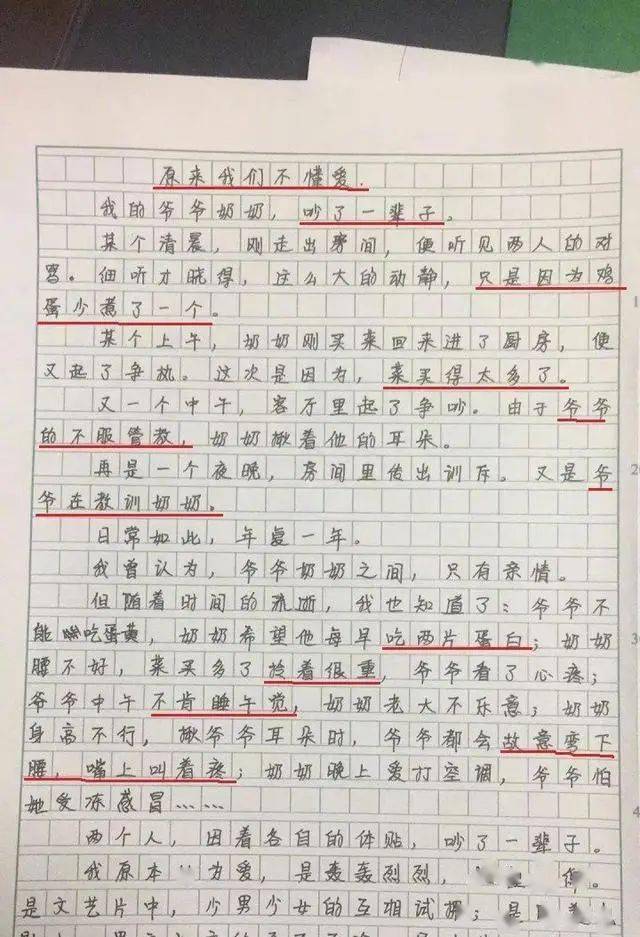 原来我们不懂爱.
我的爷爷奶奶，吵了一辈子。
某个清晨，刚走出房间，便听见两人的对
骂。细听才晓得，这么大的动静，只是因为鸡
蛋少煮了一个。
某个上午，奶奶刚买来回来进了厨房，便
又起了争执。这次是因为，菜买得太多了。
又一个中午，客厅里起了争吵。由于爷爷
的不服管教，奶奶揪着他的耳朵。
再是一个夜晚，房间里传出训斥。又是爷
爷在教训奶奶。
日常如此，年复一年。
我曾认为，爷爷奶奶之间，只有亲情。
但随着时间的流逝，我也知道了：爷爷不
能吃蛋黄，奶奶希望他每早吃两片蛋白；奶奶
腰不好，菜买多了拎着很重，爷爷看了心疼；
爷爷中午不肯睡午觉，奶奶老大不乐意；奶奶
身高不行，揪爷爷耳朵时，爷爷都会故意弯下
腰，嘴上叫着疼；奶奶晚上爱打空调，爷爷怕
她受冻感冒……
两个人，因着各自的体贴，吵了一辈子。
我原本为爱，是轰轰烈烈，
是文艺片中，少男少女的互相试探；是
1
20
30
4